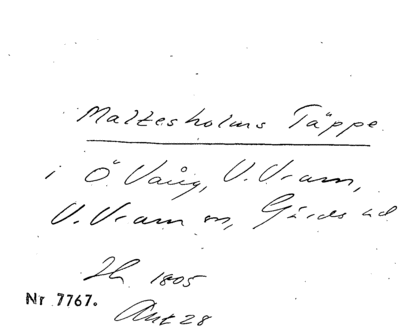 Maltesholms Täppe
i Ö. Vång, V. Vram,
V. Vram sn, Gärds hd
Jb 1805
Nr 7767.
Akt 28